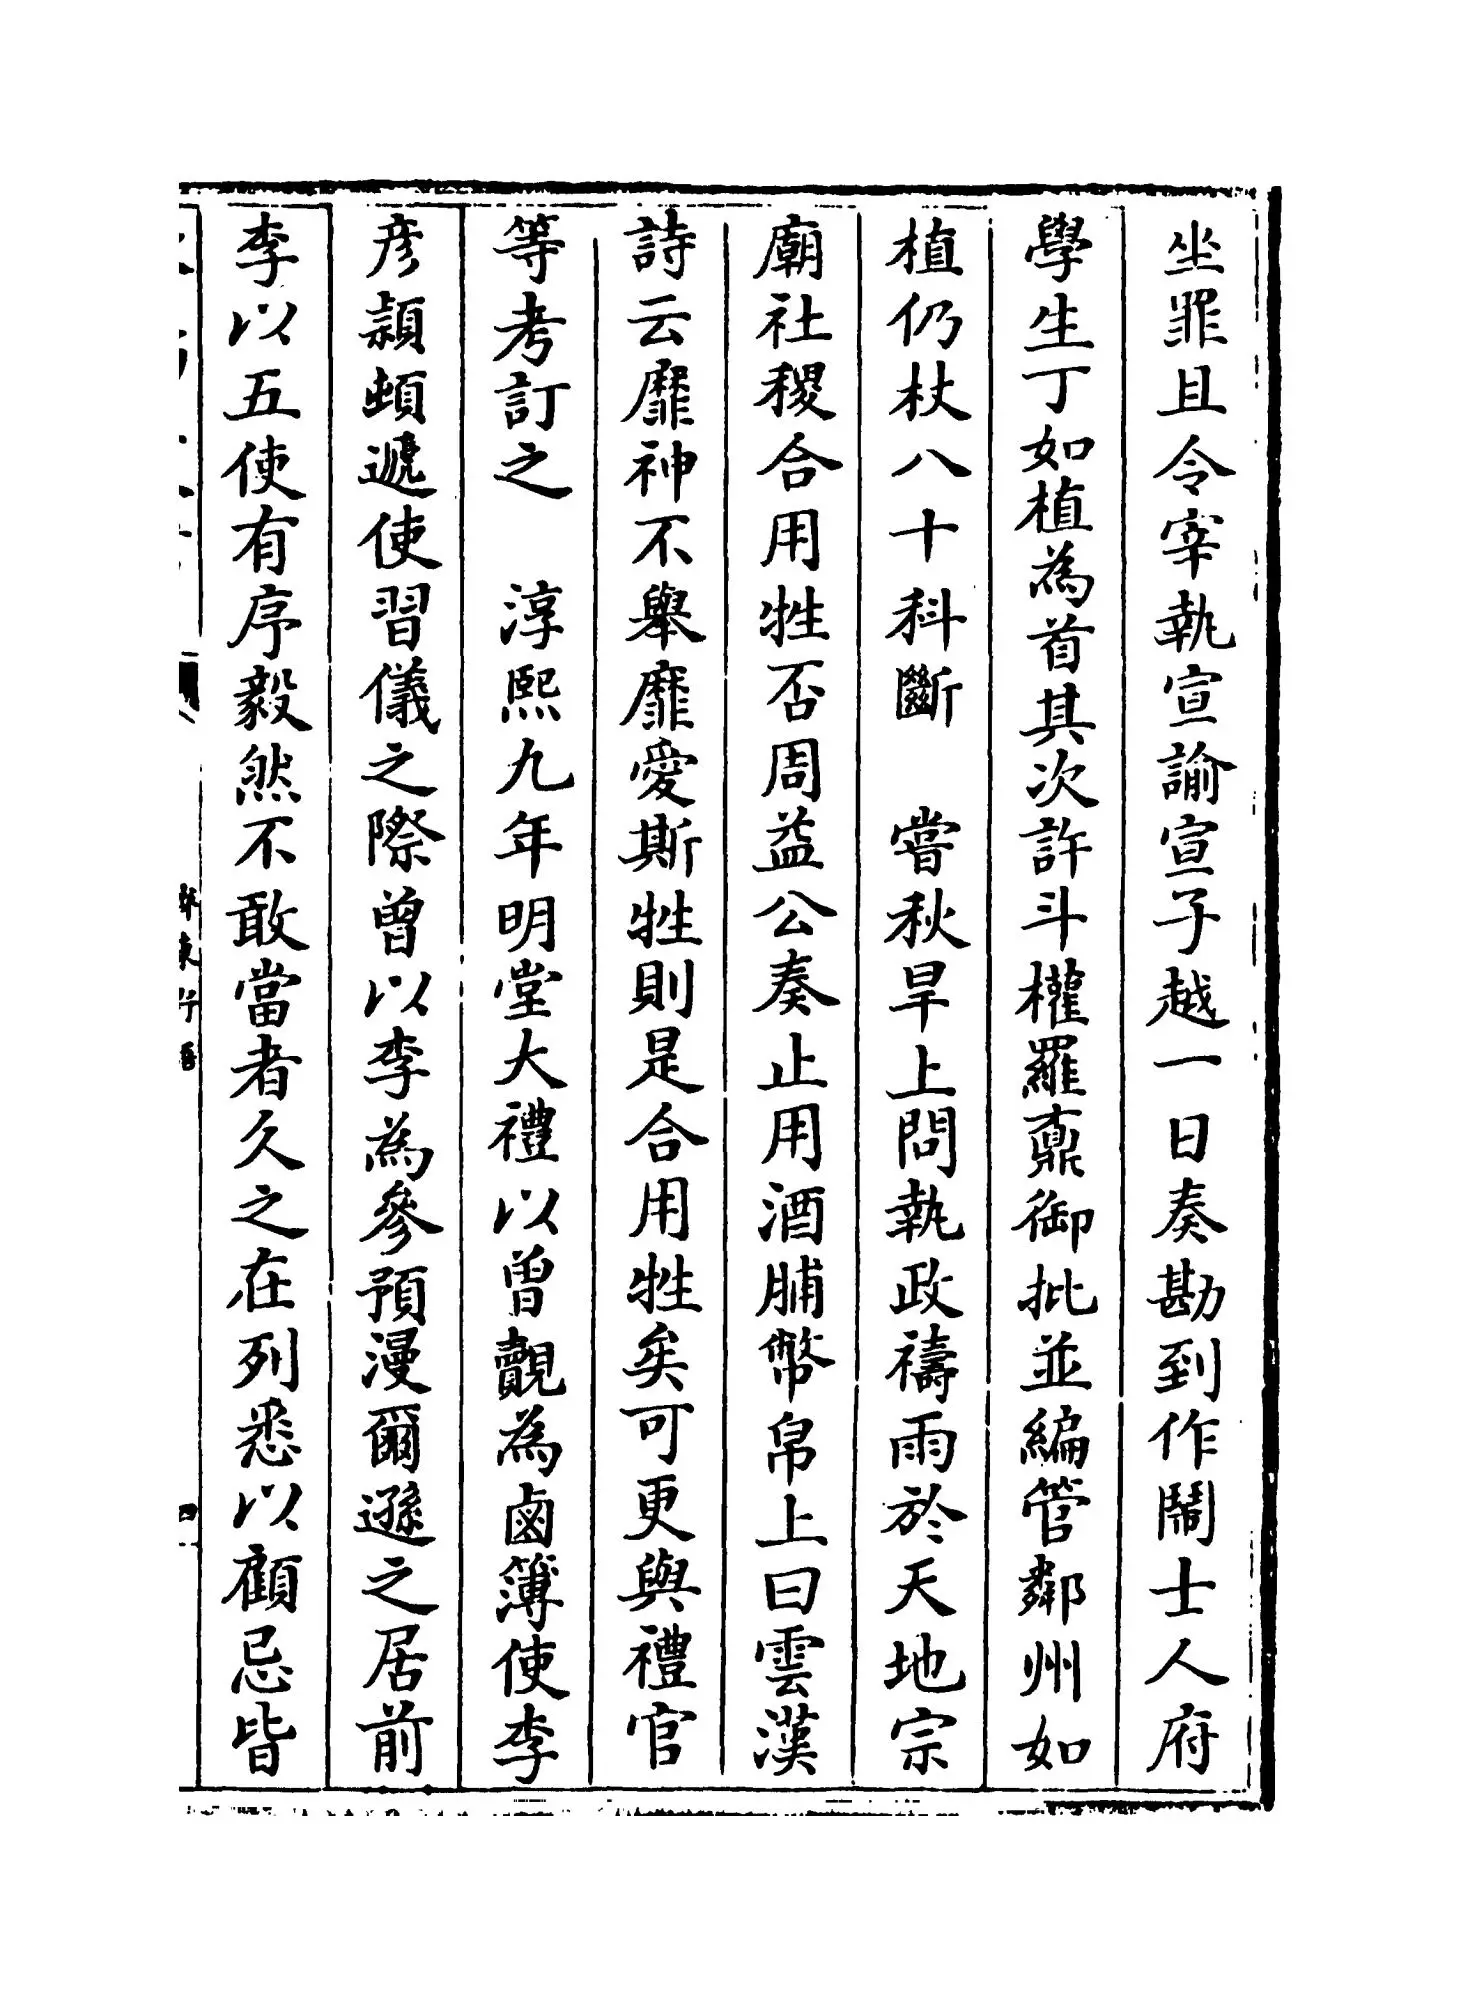 坐罪且令宰執宣諭宣子越一日奏勘到作鬧士人府
學生丁如植為首其次許斗權羅鼐御批並編管鄰州如
植仍杖八十科斷　嘗秋旱上問執政禱雨於天地宗
廟社稷合用牲否周益公奏止用酒脯幣帛上曰雲漢
詩云靡神不舉靡愛斯牲則是合用牲矣可更與禮官
等考訂之　淳熙九年明堂大禮以曾覿為鹵簿使李
彥頴頓遞使習儀之際曾以李為參預漫爾遜之居前
李以五使有序毅然不敢當者久之在列悉以顧忌皆
齊東野語
四